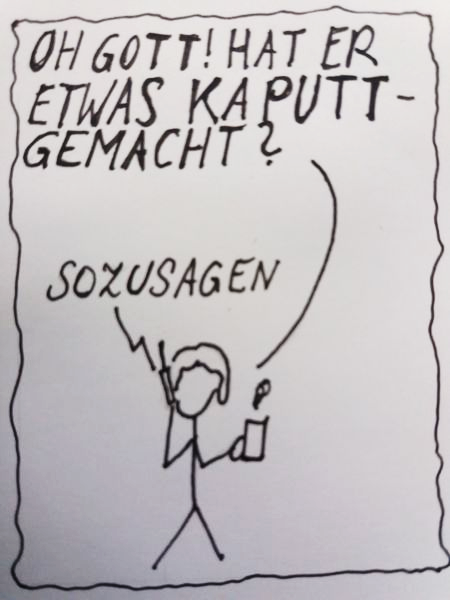 OH GOTT! HAT ER
ETWAS KAPUTT-
GEMACHT?
SOZUSAGEN